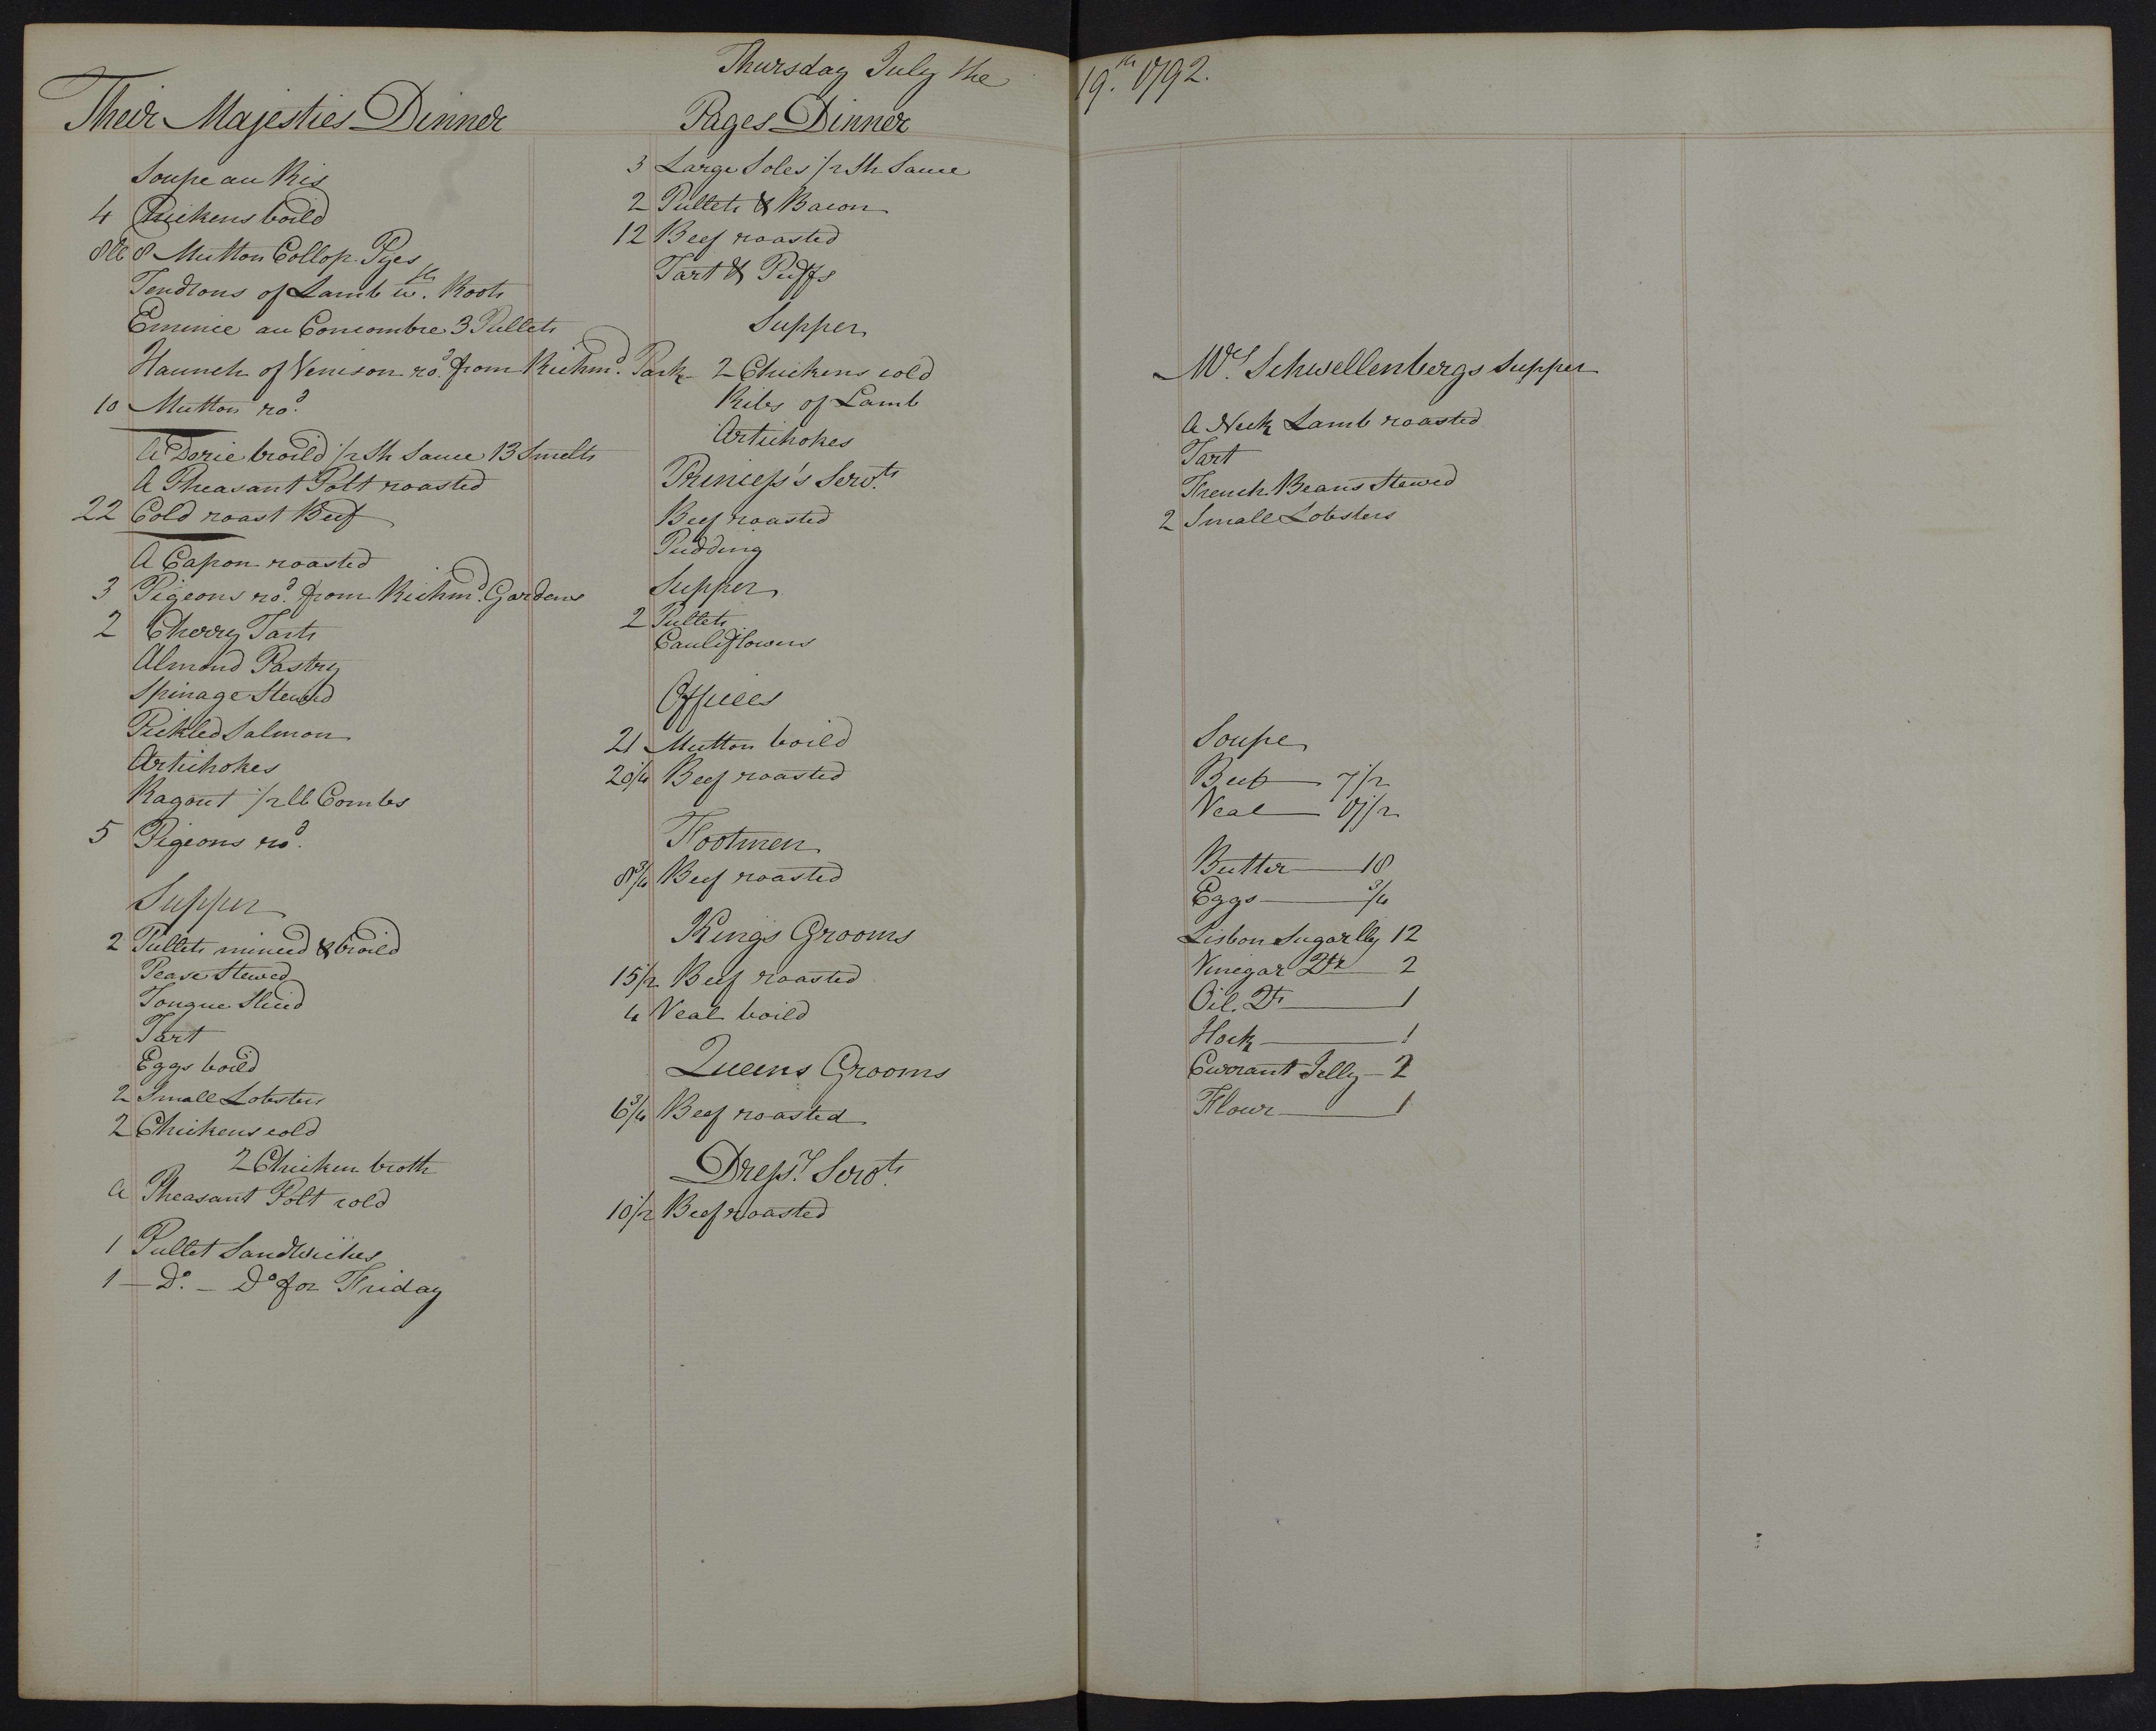 Thursday July the 19.th 1792.
Their Majesties Dinner
Soupe au Ris
4 Chickens boild
8 lb 8 Mutton Collop Pyes
Tendrons of Lamb w.th Roots
Emince au Concombre 3 Pullets
Haunch of Venison ro.d from Richm.d Park
10 Mutton ro.d
A Dorie broild 1/2 Sh Sauce 13 Smelts
A Pheasant Polt roasted
22 Cold roast Beef
A Capon roasted
3 Pigeons ro.d from Richm.d Gardens
2 Cherry Tarts
Almond Pastry
Spinage Stewed
Pickled Salmon
Artichokes
Ragout 1/2 lb Combs
5 Pigeons ro.d
Supper
2 Pullets minced & broild
Pease Stewed
Tongue Sliced
Tart
Eggs boild
2 Small Lobsters
2 Chickens cold
2 Chicken broth
A Pheasant Polt cold
1 Pullet Sandwiches
1 — D.o — D.o for Friday
Pages Dinner
3 Large Soles 1/2 Sh Sauce
2 Pullets & Bacon
12 Beef roasted
Tart & Puffs
Supper
2 Chickens cold
Ribs of Lamb
Artichokes
Princess's Serv.ts
Beef roasted
Pudding
Supper
2 Pullets
Cauliflowers
Offices
21 Mutton boild
20 1/4 Beef roasted
Footmen
8 3/4 Beef roasted
Kings Grooms
15 1/2 Beef roasted
4 Veal boild
Queens Grooms
6 3/4 Beef roasted
Dress.rs Serv.ts
10 1/2 Beef roasted
M.rs Schwellenbergs Supper
A Neck Lamb roasted
Tart
French Beans Stewed
2 Small Lobsters
Soupe
Beef — 7 1/2
Veal — 7 1/2
Butter — 18
Eggs — 3/4
Lisbon Sugar lb 12
Vinegar Qts 2
Oil. Qt — 1
Hock — 1
Currant Jelly — 2
Flour — 1